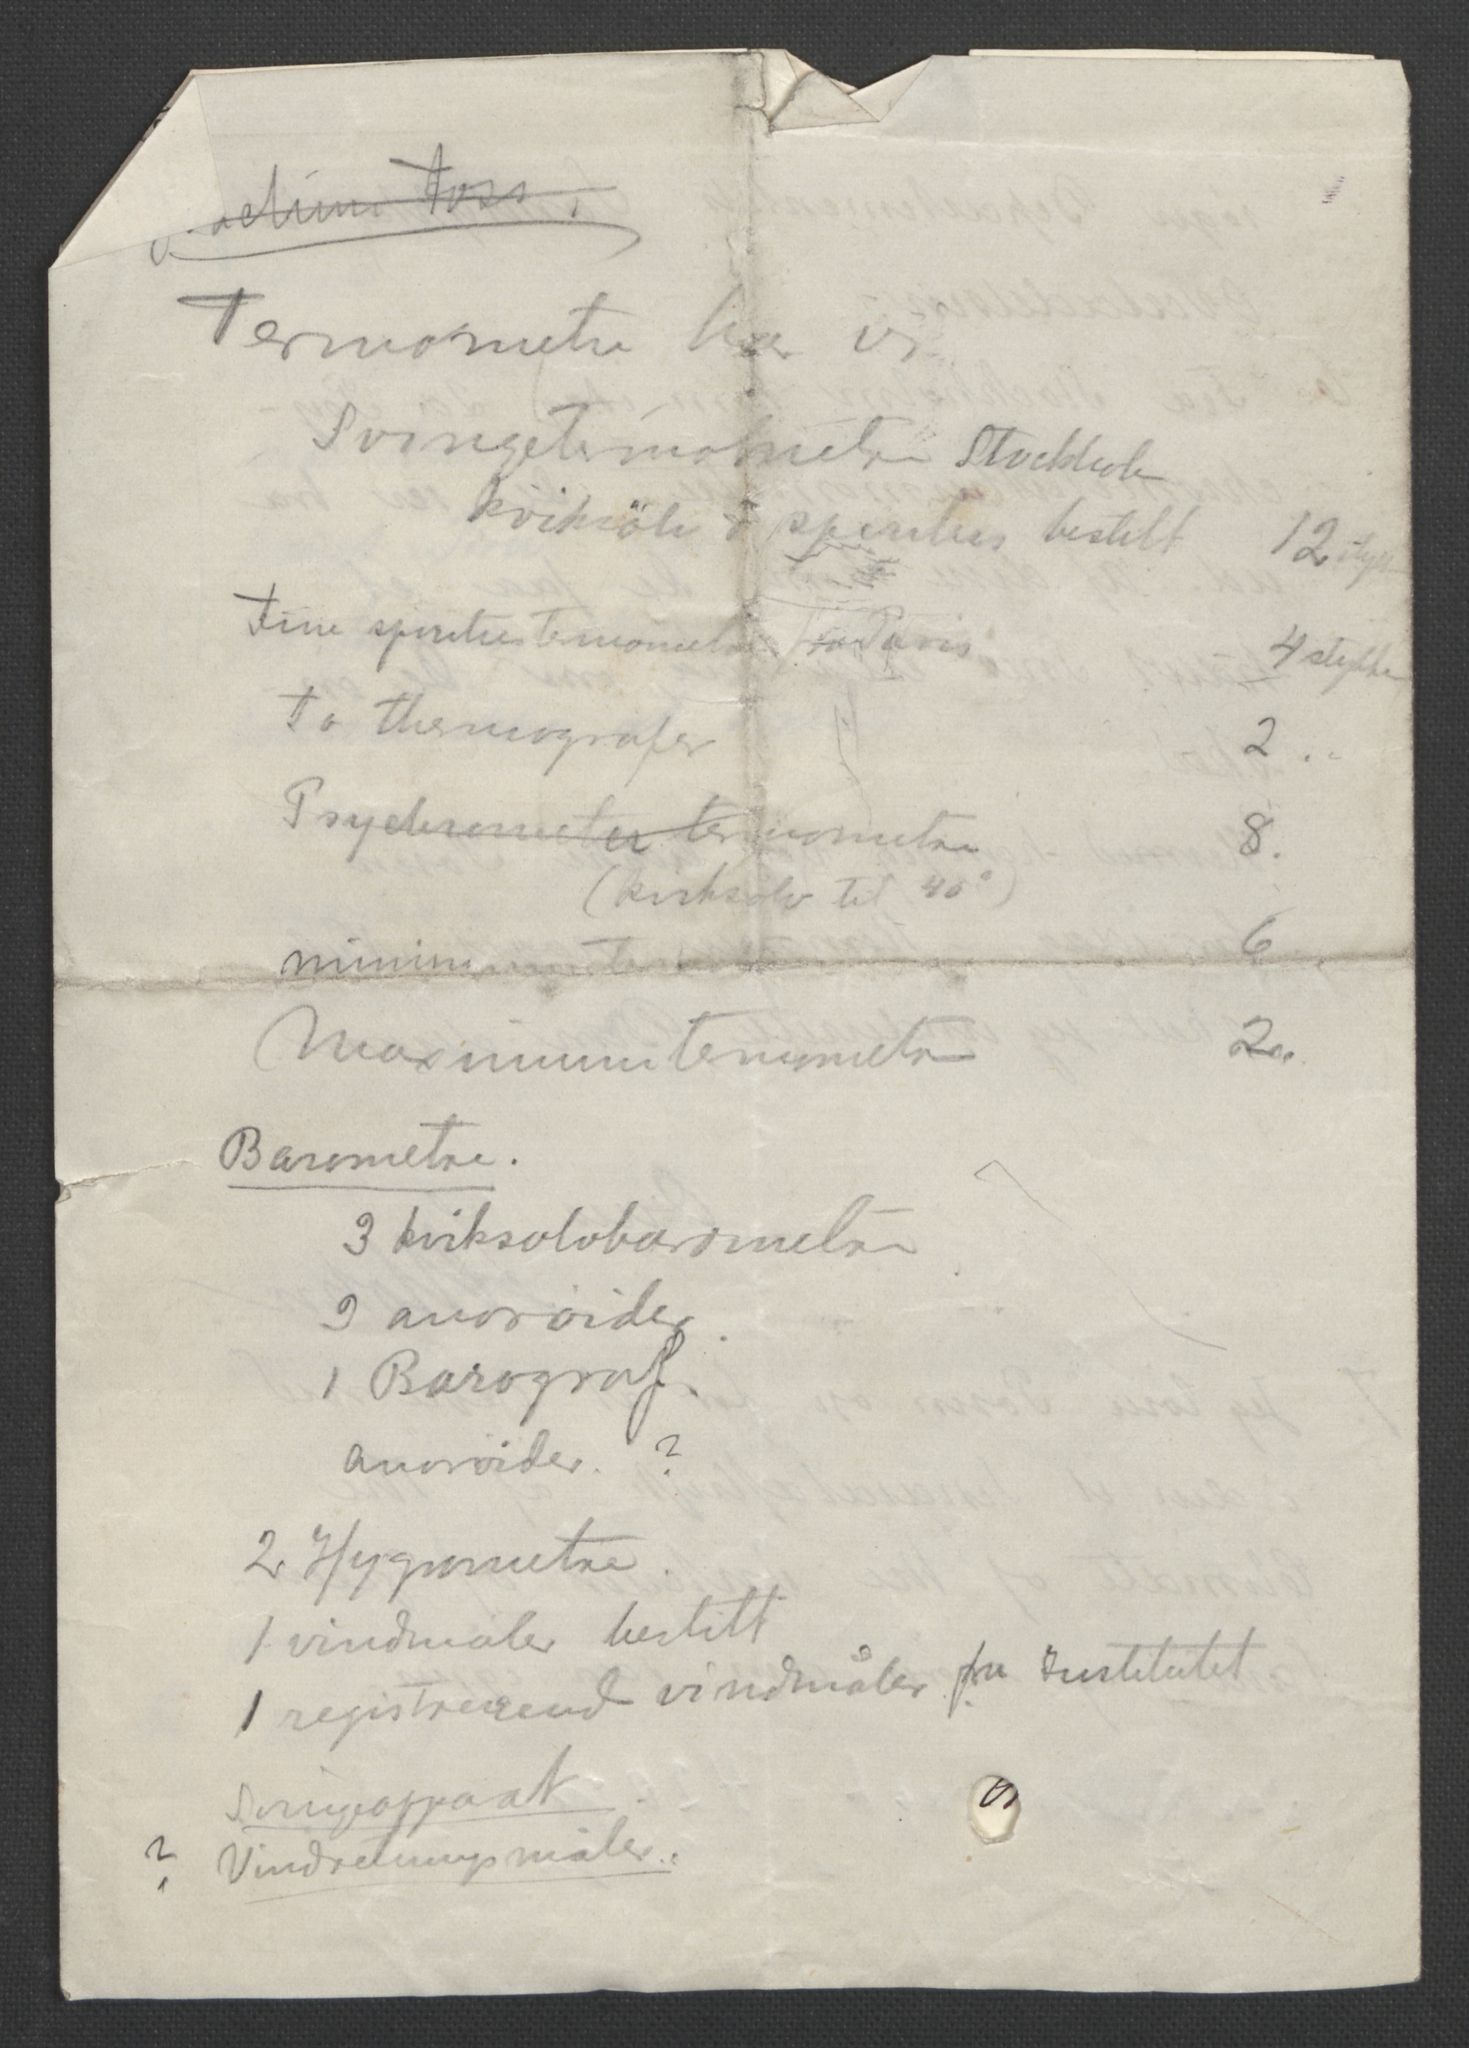 Termometre har vi
Svingetermometre Stockholm
kviksölv & spiritus bestilt 12 stykk
Fine spiritustermometre fra Paris 4 stykke
to thermografer 2 "
Psychrometer termometre 8.
(kviksølv til 40°)
minimumtermometre 6
Maximumtermometre 2 "
Barometre.
3 kviksølvbarometre
3 anoroider.
1 Barograf.
anoroider. ?
2 Hygrometre.
1 vindmåler bestilt
1 registrerend vindmåler fra Institutet
Svingeapparat
? Vindretningsmåler.